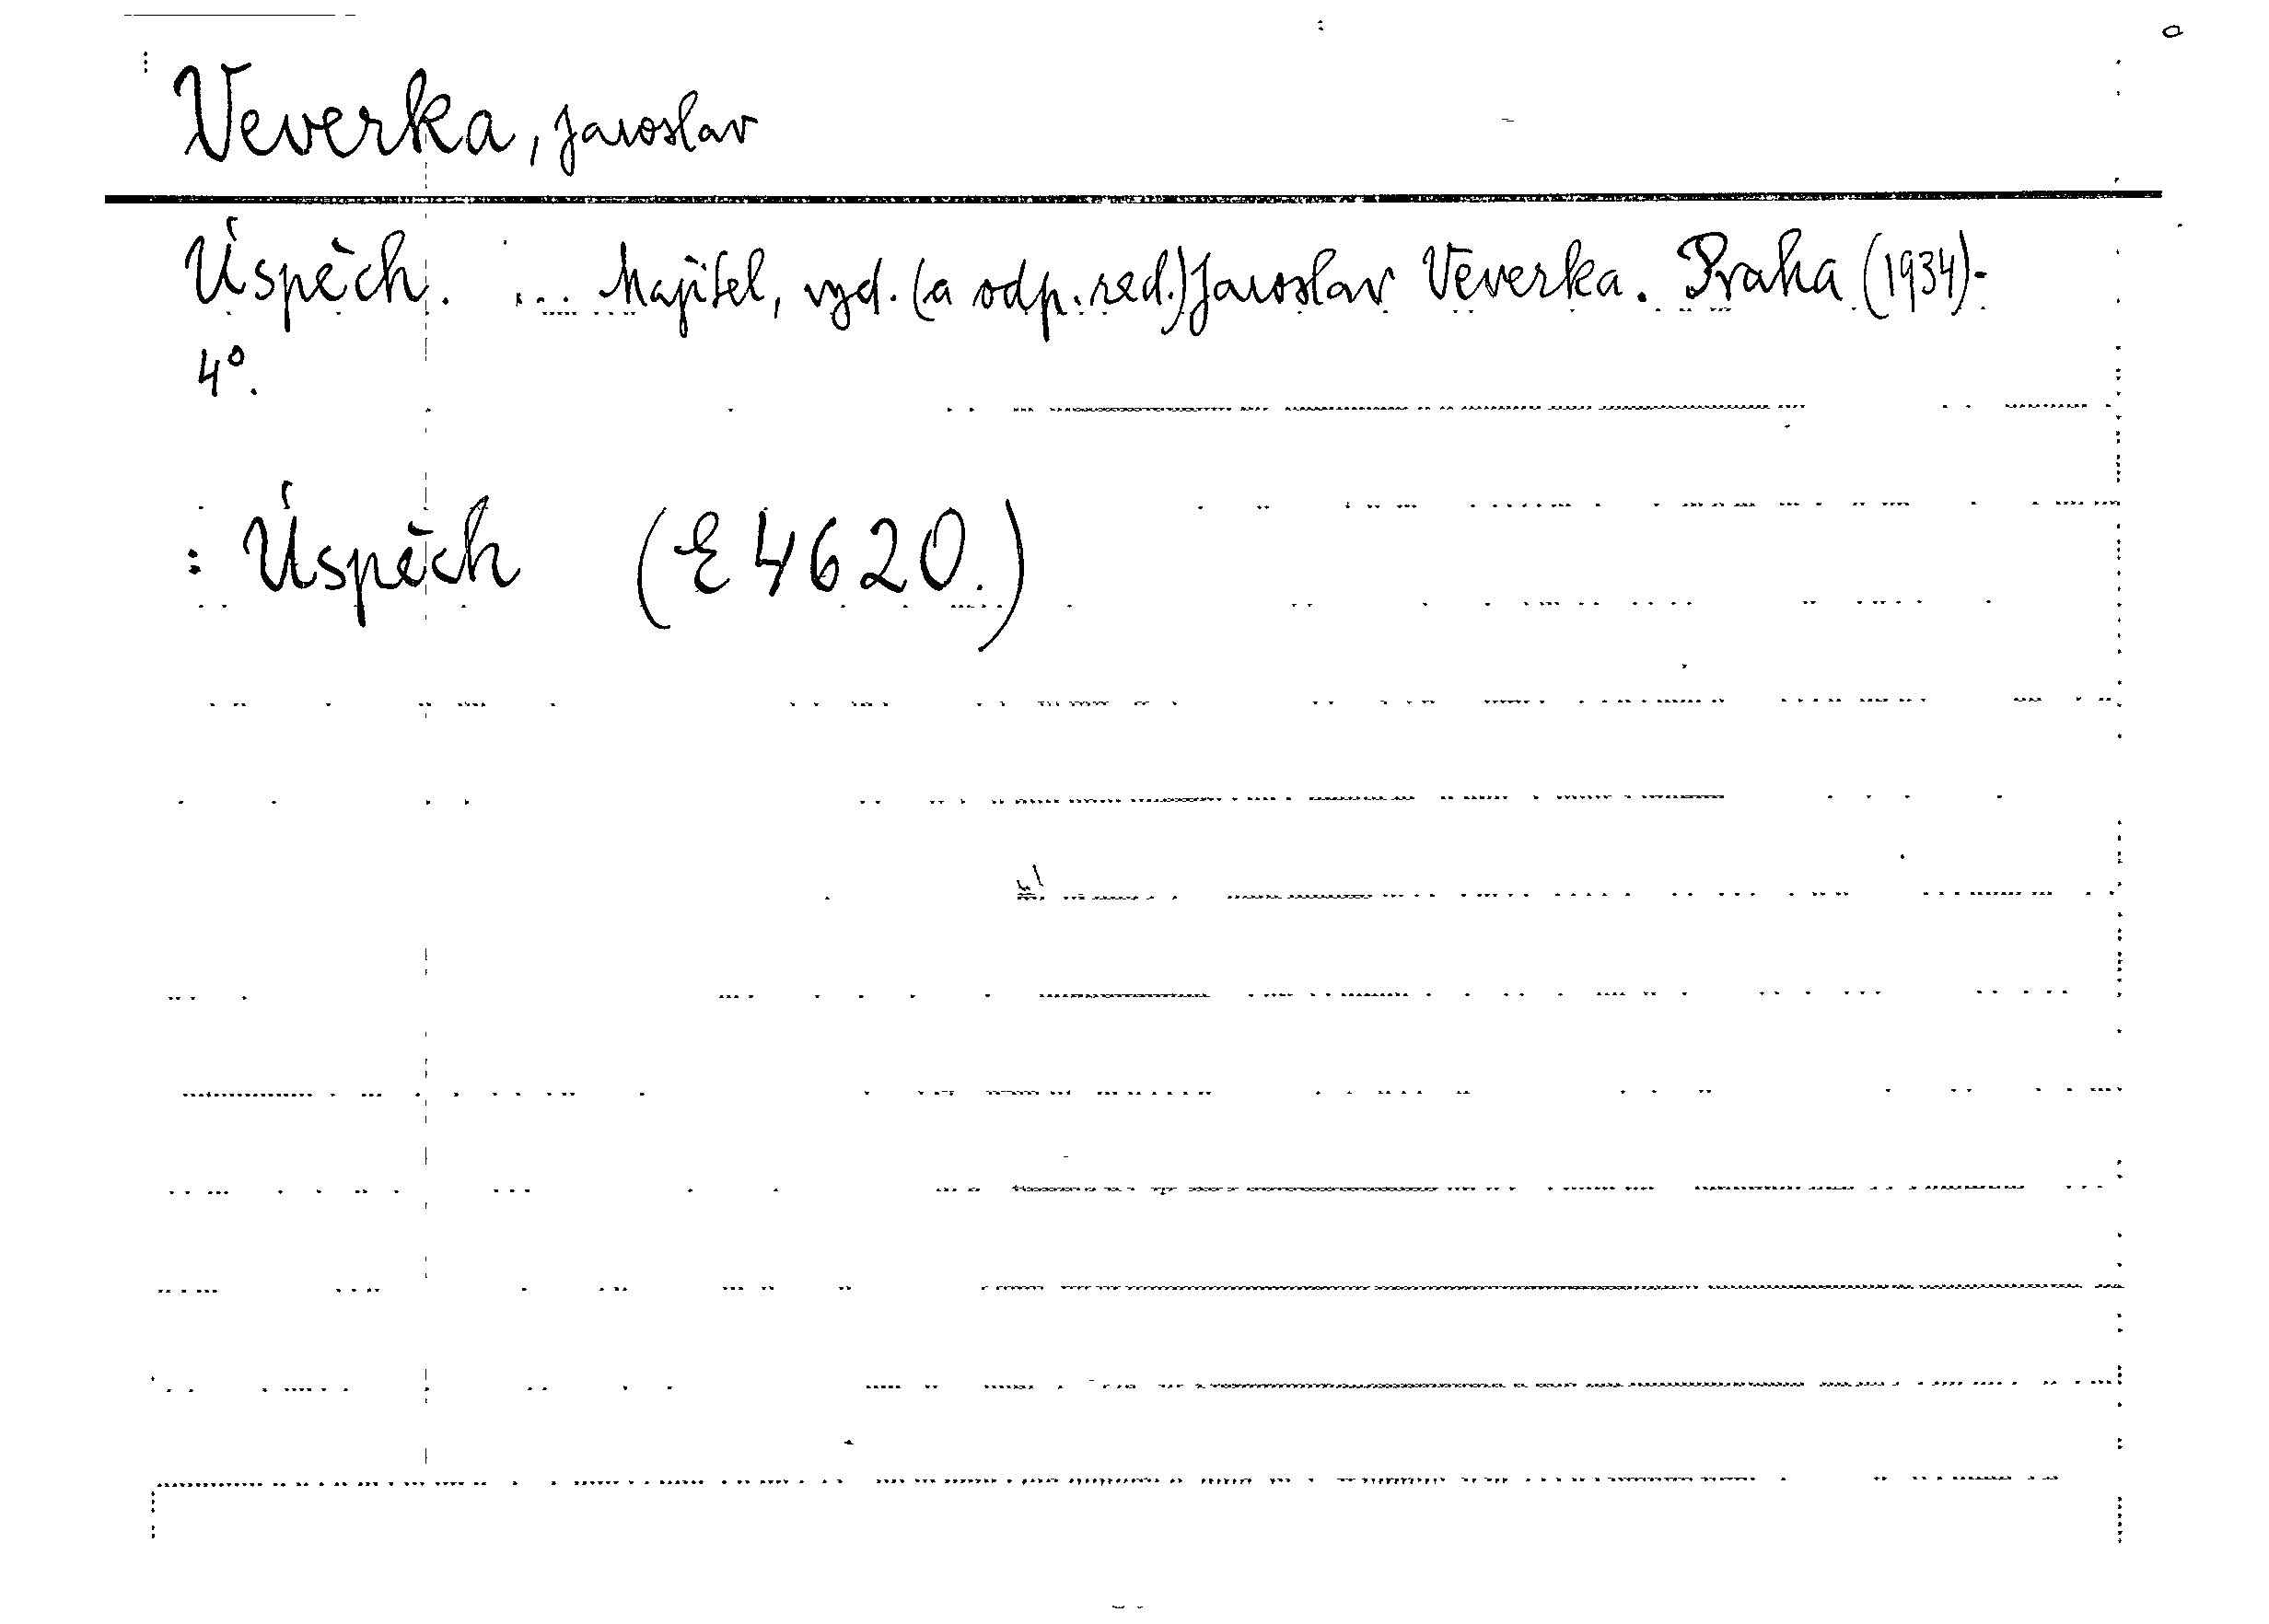 Veverka, Jaroslav
Úspěch. ... Majitel, vyd. (a odp. red.) Jaroslav Veverka. Praha (1934)-
4°.
: Úspěch (E 4620.)